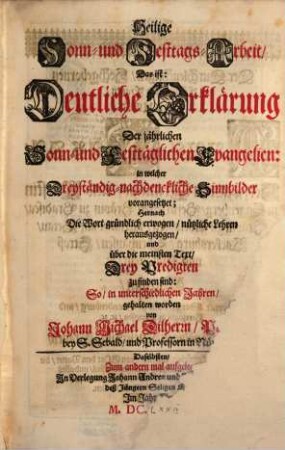 Heilige
Sonn- und Festtags-Arbeit/
Das ist:
Deutliche Erklärung
Der jährlichen
Sonn- und Festtäglichen Evangelien:
in welcher
Dreyständig-nachdenckliche Sinnbilder
vorangesetzet;
Hernach
Die Wort gründlich erwogen / nützliche Lehren
herausgezogen/
und
über die meinsten Text/
Drey Predigten
zu finden sind:
So / in unterschiedlichen Jahren/
gehalten worden
von
Johann Michael Dilherrn / P.
bey S. Sebald / und Professorn in Nü-
Daselbsten/
Zum andern mal aufgele
In Verlegung Johann Andreæ und
deß Jüngern Seligen
Im Jahr
M. DC.